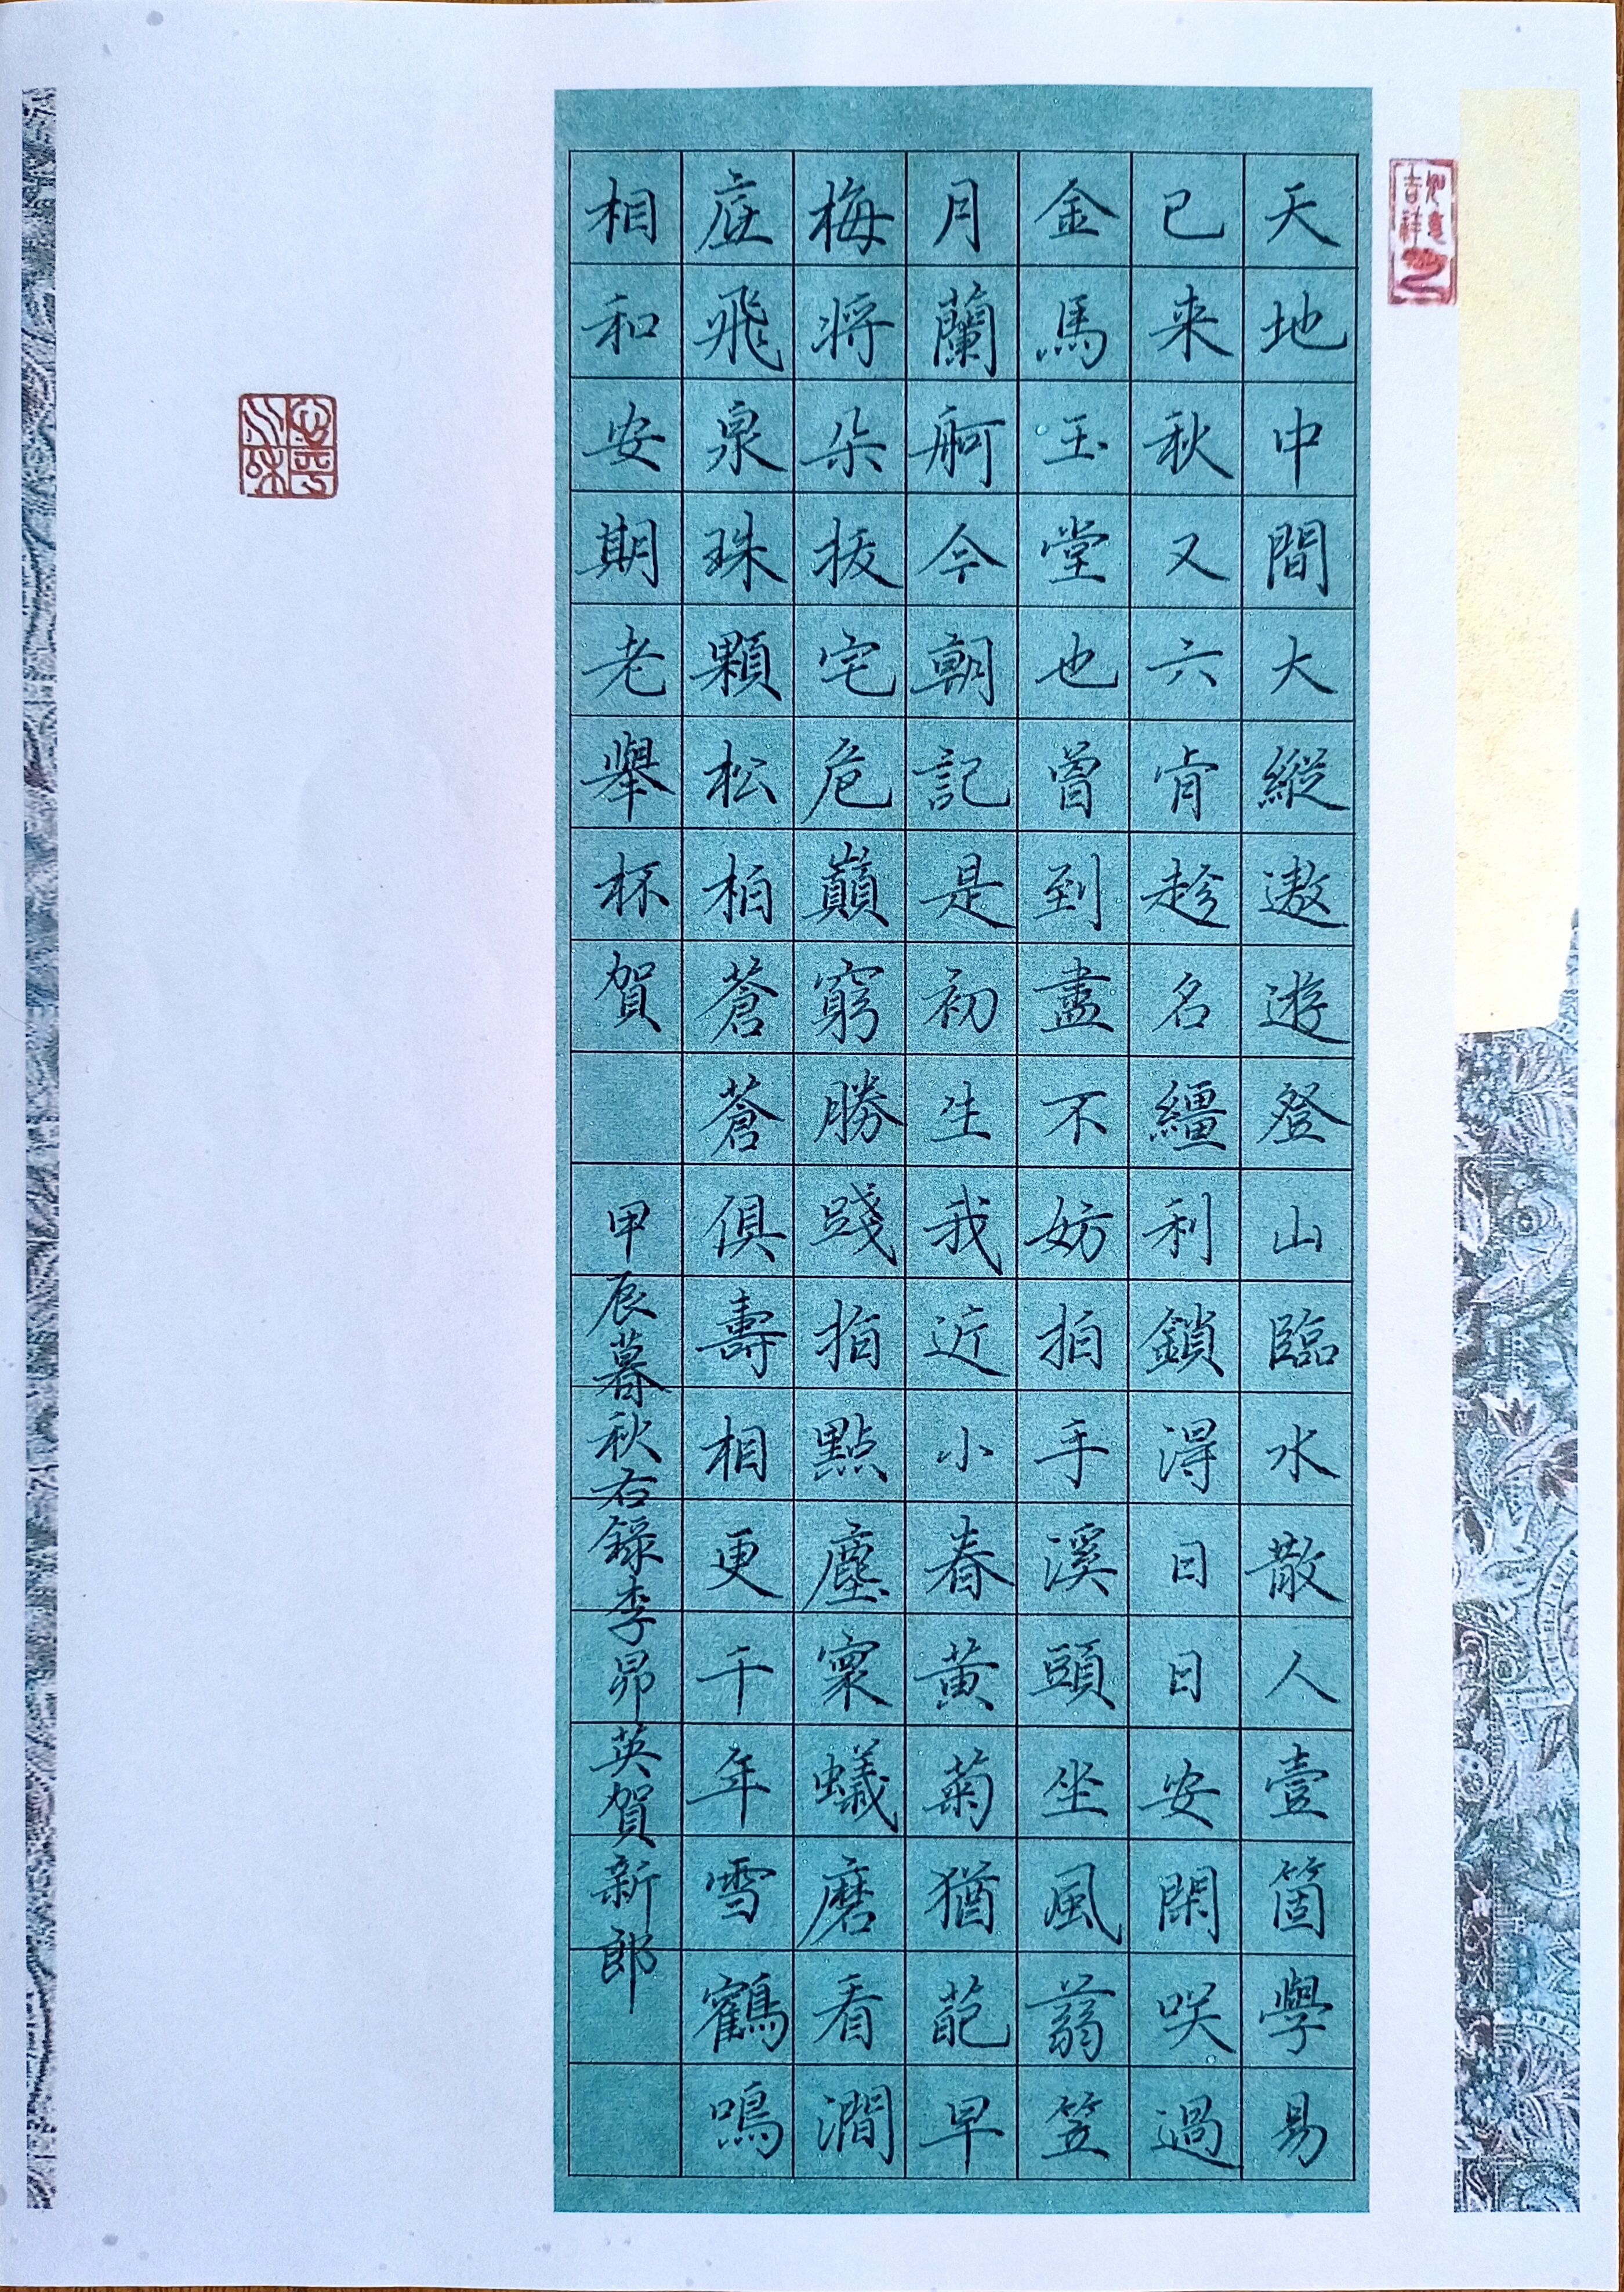 如意吉祥
天地中間大縱遨遊登山臨水散人壹箇學易
已来秋又六肯趁名繮利鎖淂日日安閑咲過
金馬玉堂也曾到盡不妨拍手溪頭坐風蓊笠
月蘭舸今朝記是初生我近小春黃菊猶葩早
梅將朵拔宅危巔窮勝踐指點塵寰蟻磨看澗
底飛泉珠顆松柏蒼蒼俱壽相更千年雪鶴鳴
相和安期老舉杯賀
甲辰暮秋右錄李昴英賀新郎